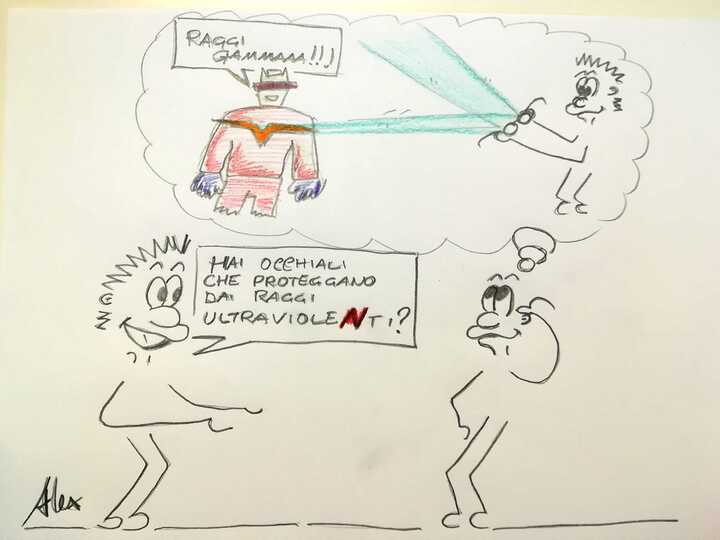 RAGGI
GAMMAAA!!!
HAI OCCHIALI
CHE PROTEGGANO
DAI RAGGI
ULTRAVIOLENTI?
Alex